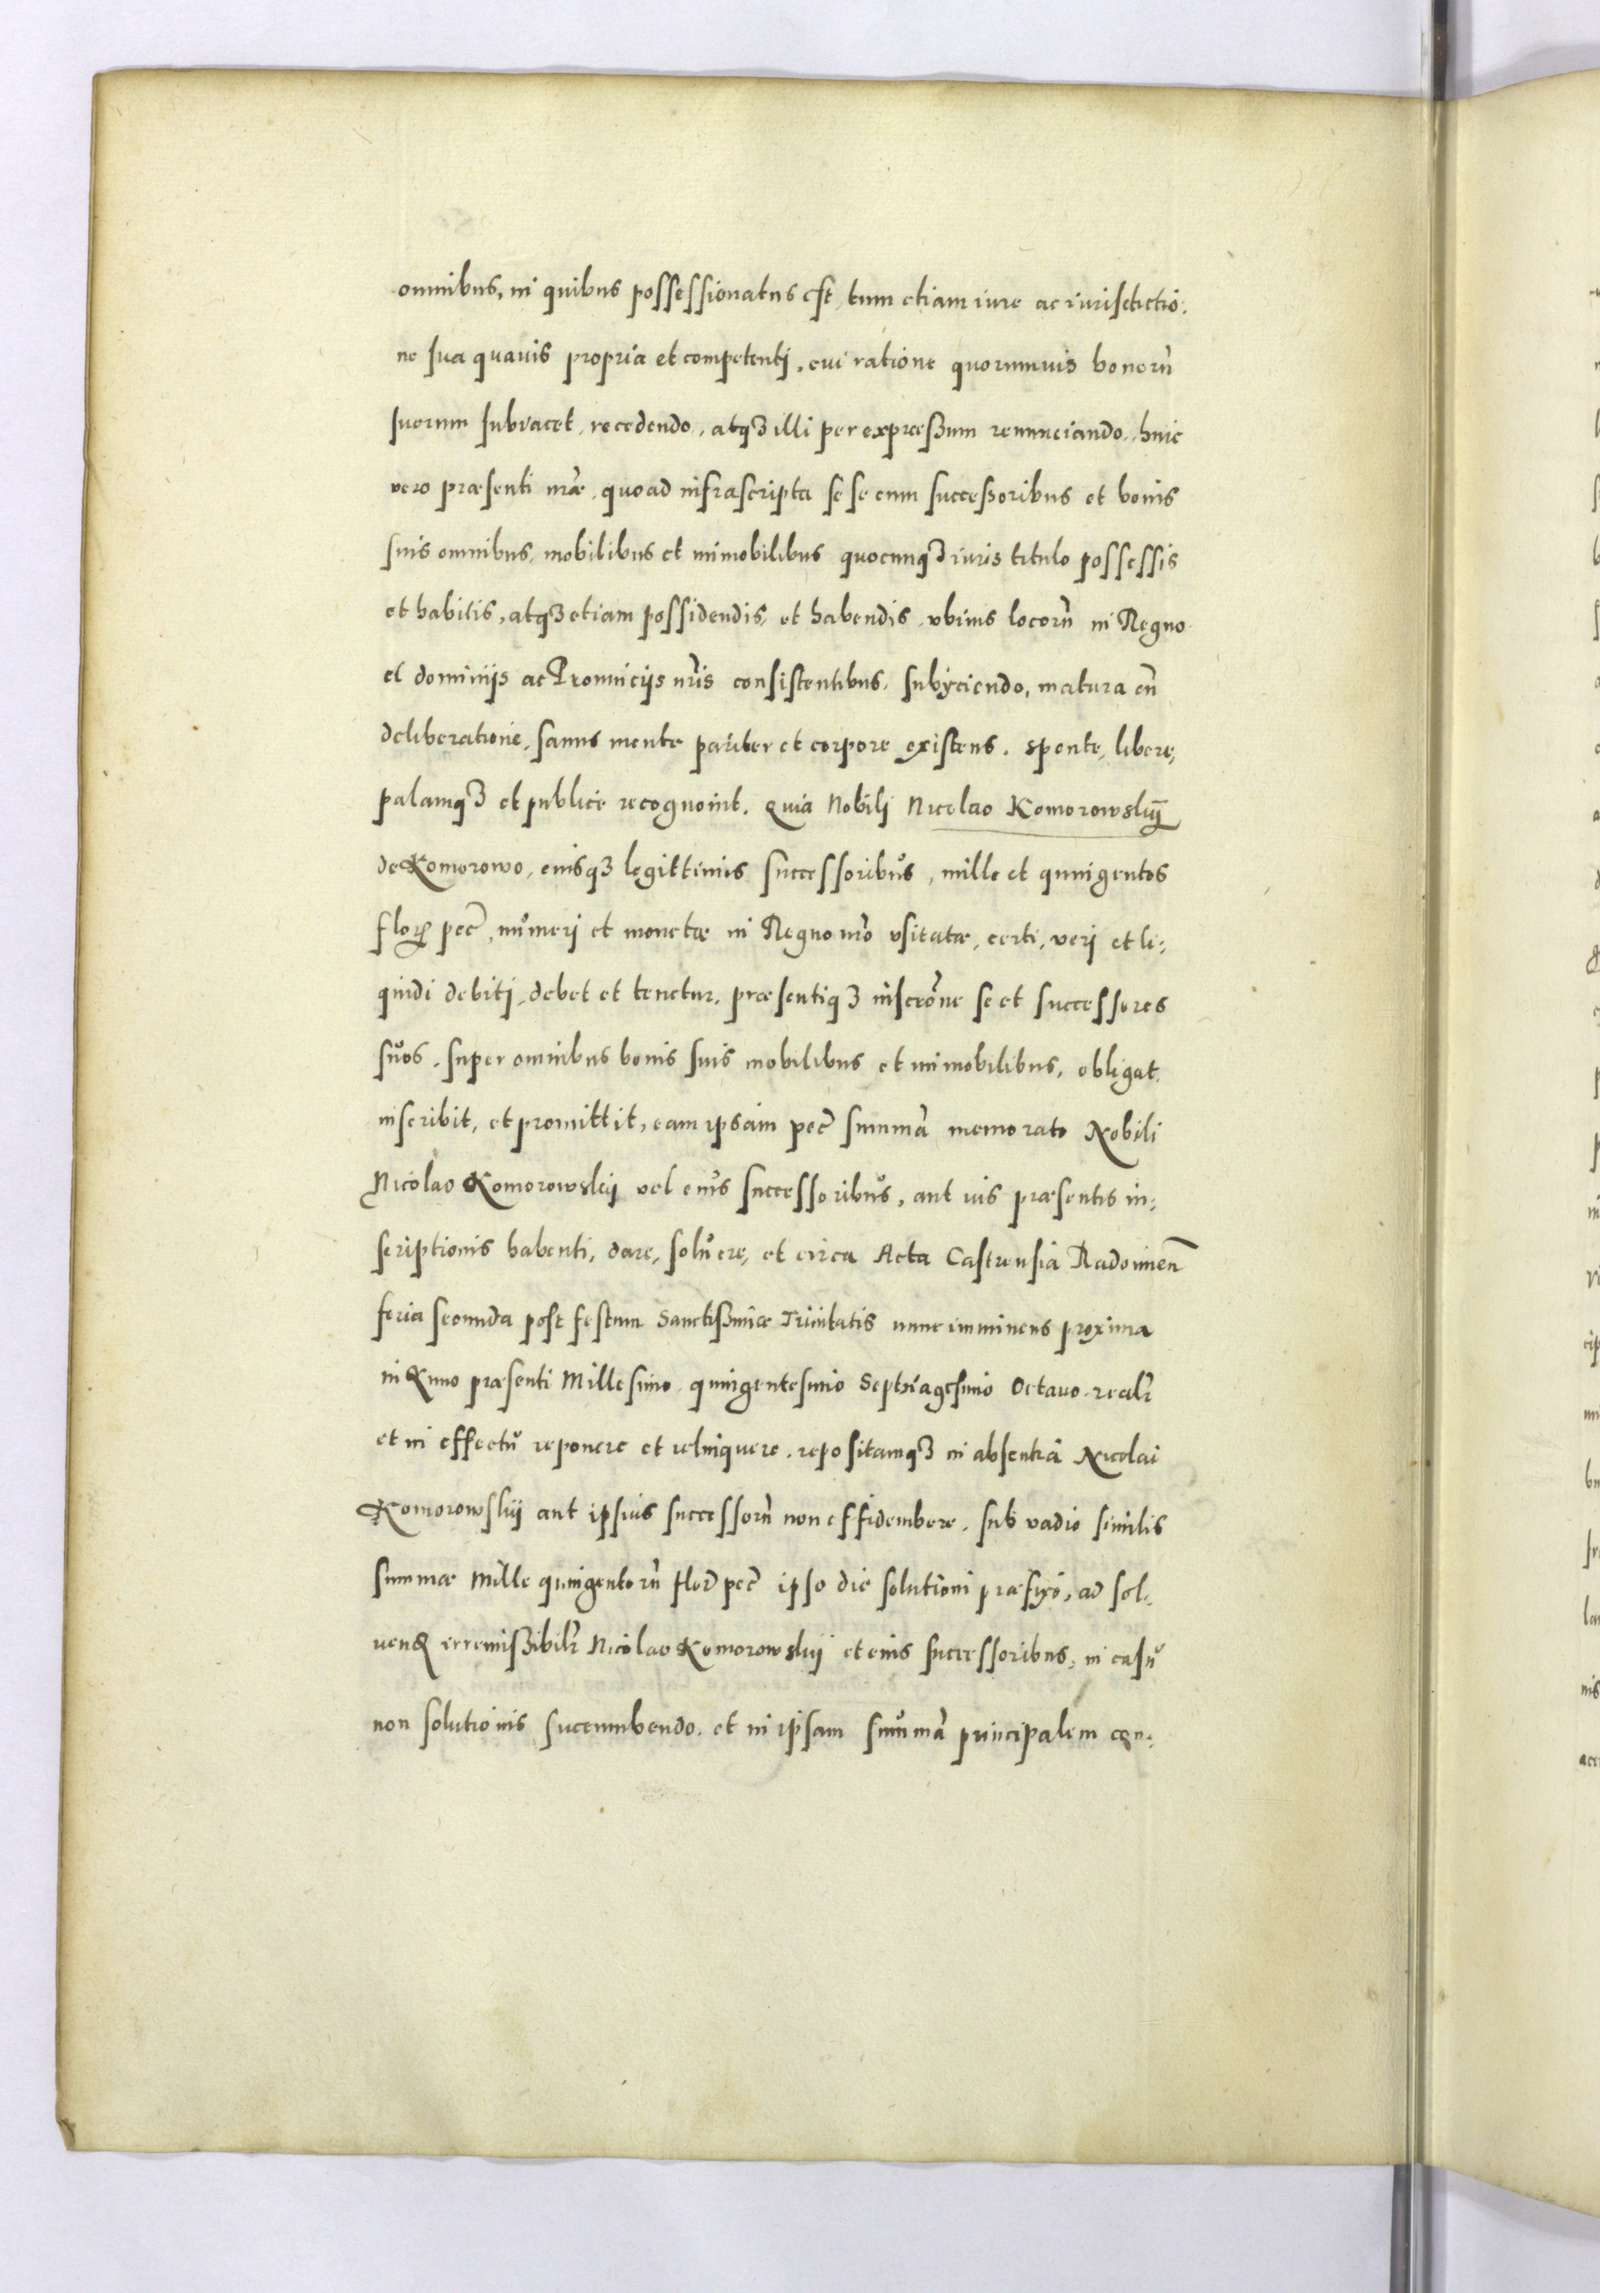 omnibus, in quibus possessionatus est, tum etiam iure ac iurisdictio:
ne sua quauis propria et competenti, cui ratione quorumuis bonorũ
suorum subiacet, recedendo, atqꝫ illi per expressum renunciando, huic
vero præsenti nr̃æ, quoad infrascripta se se cum successoribus et bonis
suis omnibus, mobilibus et immobilibus quocunqꝫ iuris titulo possessis
et habitis, atqꝫ etiam possidendis, et habendis vbiuis locorũ in Regno
et dominijs ac Prouincijs nr̃is consistentibus, subijciendo, matura cũ
deliberatione, sanus mente pariter et corpore existens. sponte, libere,
palamqꝫ et publice recognouit. Quia Nobili Nicolao Komorowskij
de Komorowo, eiusqꝫ legittimis successoribus, mille et quingentos
flor̃ pec̃, numeri et monetæ in Regno nr̃o vsitatæ, certi, veri et li:
quidi debiti, debet et tenetur, præsentiqꝫ inscrõne se et successores
suos, super omnibus bonis suis mobilibus et immobilibus, obligat,
inscribit, et promittit, eam ipsam pec̃ summã memorato Nobili
Nicolao Komorowskij vel eius successoribus, aut ius præsentis in:
scriptionis habenti, dare, soluere, et circa Acta Castrensia Radomien̄
feria secunda post festum Sanctissimæ Trinitatis nunc imminens proxima
in Anno præsenti Millesimo quingentesimo Septuagesimo Octauo realr̃
et in effectu reponere et relinquere, repositamqꝫ in absentia Nicolai
Komorowskij aut ipsius successorũ non effidembere, sub vadio similis
summæ Mille quingentorũ flor̃ pec̃ ipso die solutioni præfixo, ad sol:
uend̃ irremissibilr̃ Nicolao Komorowskij et eius successoribus, in casu
non solutionis succumbendo, et in ipsam summã principalem con: